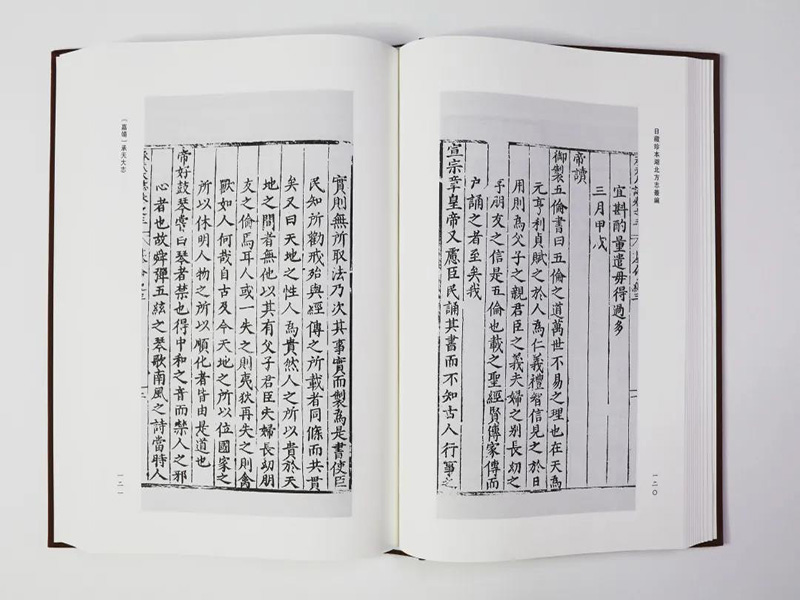 日藏珍本湖北方志叢編
宜斟酌量遣毋得過多
三月甲戌
帝讀
御製五倫書曰五倫之道萬世不易之理也在天為
元亨利貞賦之於人為仁義禮智信見之於日
用則為父子之親君臣之義夫婦之别長幼之
予朋友之信是五倫也載之聖經賢傳家傳而
户誦之者至矣我
宣宗章皇帝又慮臣民誦其書而不知古人行事之
一二〇
實則無所取法乃次其事實而製為是書使臣
民知所勸戒殆與經傳之所載者同條而共貫
矣又曰天地之性人為貴然人之所以貴於天
地之間者無他以其有父子君臣夫婦長幼朋
友之倫焉耳人或一失之則夷狄再失之則禽
獸如人何哉自古及今天地之所以位國家之
所以休明人物之所以順化者皆由是道也
帝好鼓琴嘗曰琴者禁也得中和之音而禁人之邪
心者也故舜彈五絃之琴歌南風之詩當時人
［嘉靖］承天大志
一二一